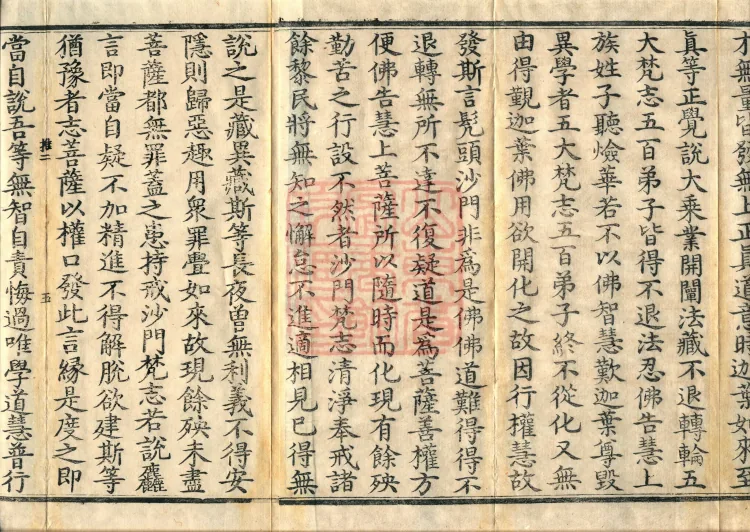 才無量皆發無上正真道意時迦葉如來至
真等正覺說大乘業開闡法藏不退轉輪五
大梵志五百弟子皆得不退法忍佛告慧上
族姓子聽燄華若不以佛智慧歎迦葉尊毀
異學者五大梵志五百弟子終不從化又無
由得觀迦葉佛用欲開化之故因行權慧故
發斯言髠頭沙門非為是佛佛道難得得不
退轉無所不達不復疑道是為菩薩善權方
便佛告慧上菩薩所以隨時而化現有餘殃
勤苦之行設不然者沙門梵志清淨奉戒諸
餘黎民將無知之懈怠不進適相見已得無
說之是藏異藏斯等長夜曾無利義不得安
隱則歸惡趣用眾罪舋如來故現餘殃未盡
菩薩都無罪蓋之患持戒沙門梵志若說麤
言即當自疑不加精進不得解脫欲建斯等
猶豫者志菩薩以權口發此言緣是度之即
推二 五
當自說吾等無智自責悔過唯學道慧普行